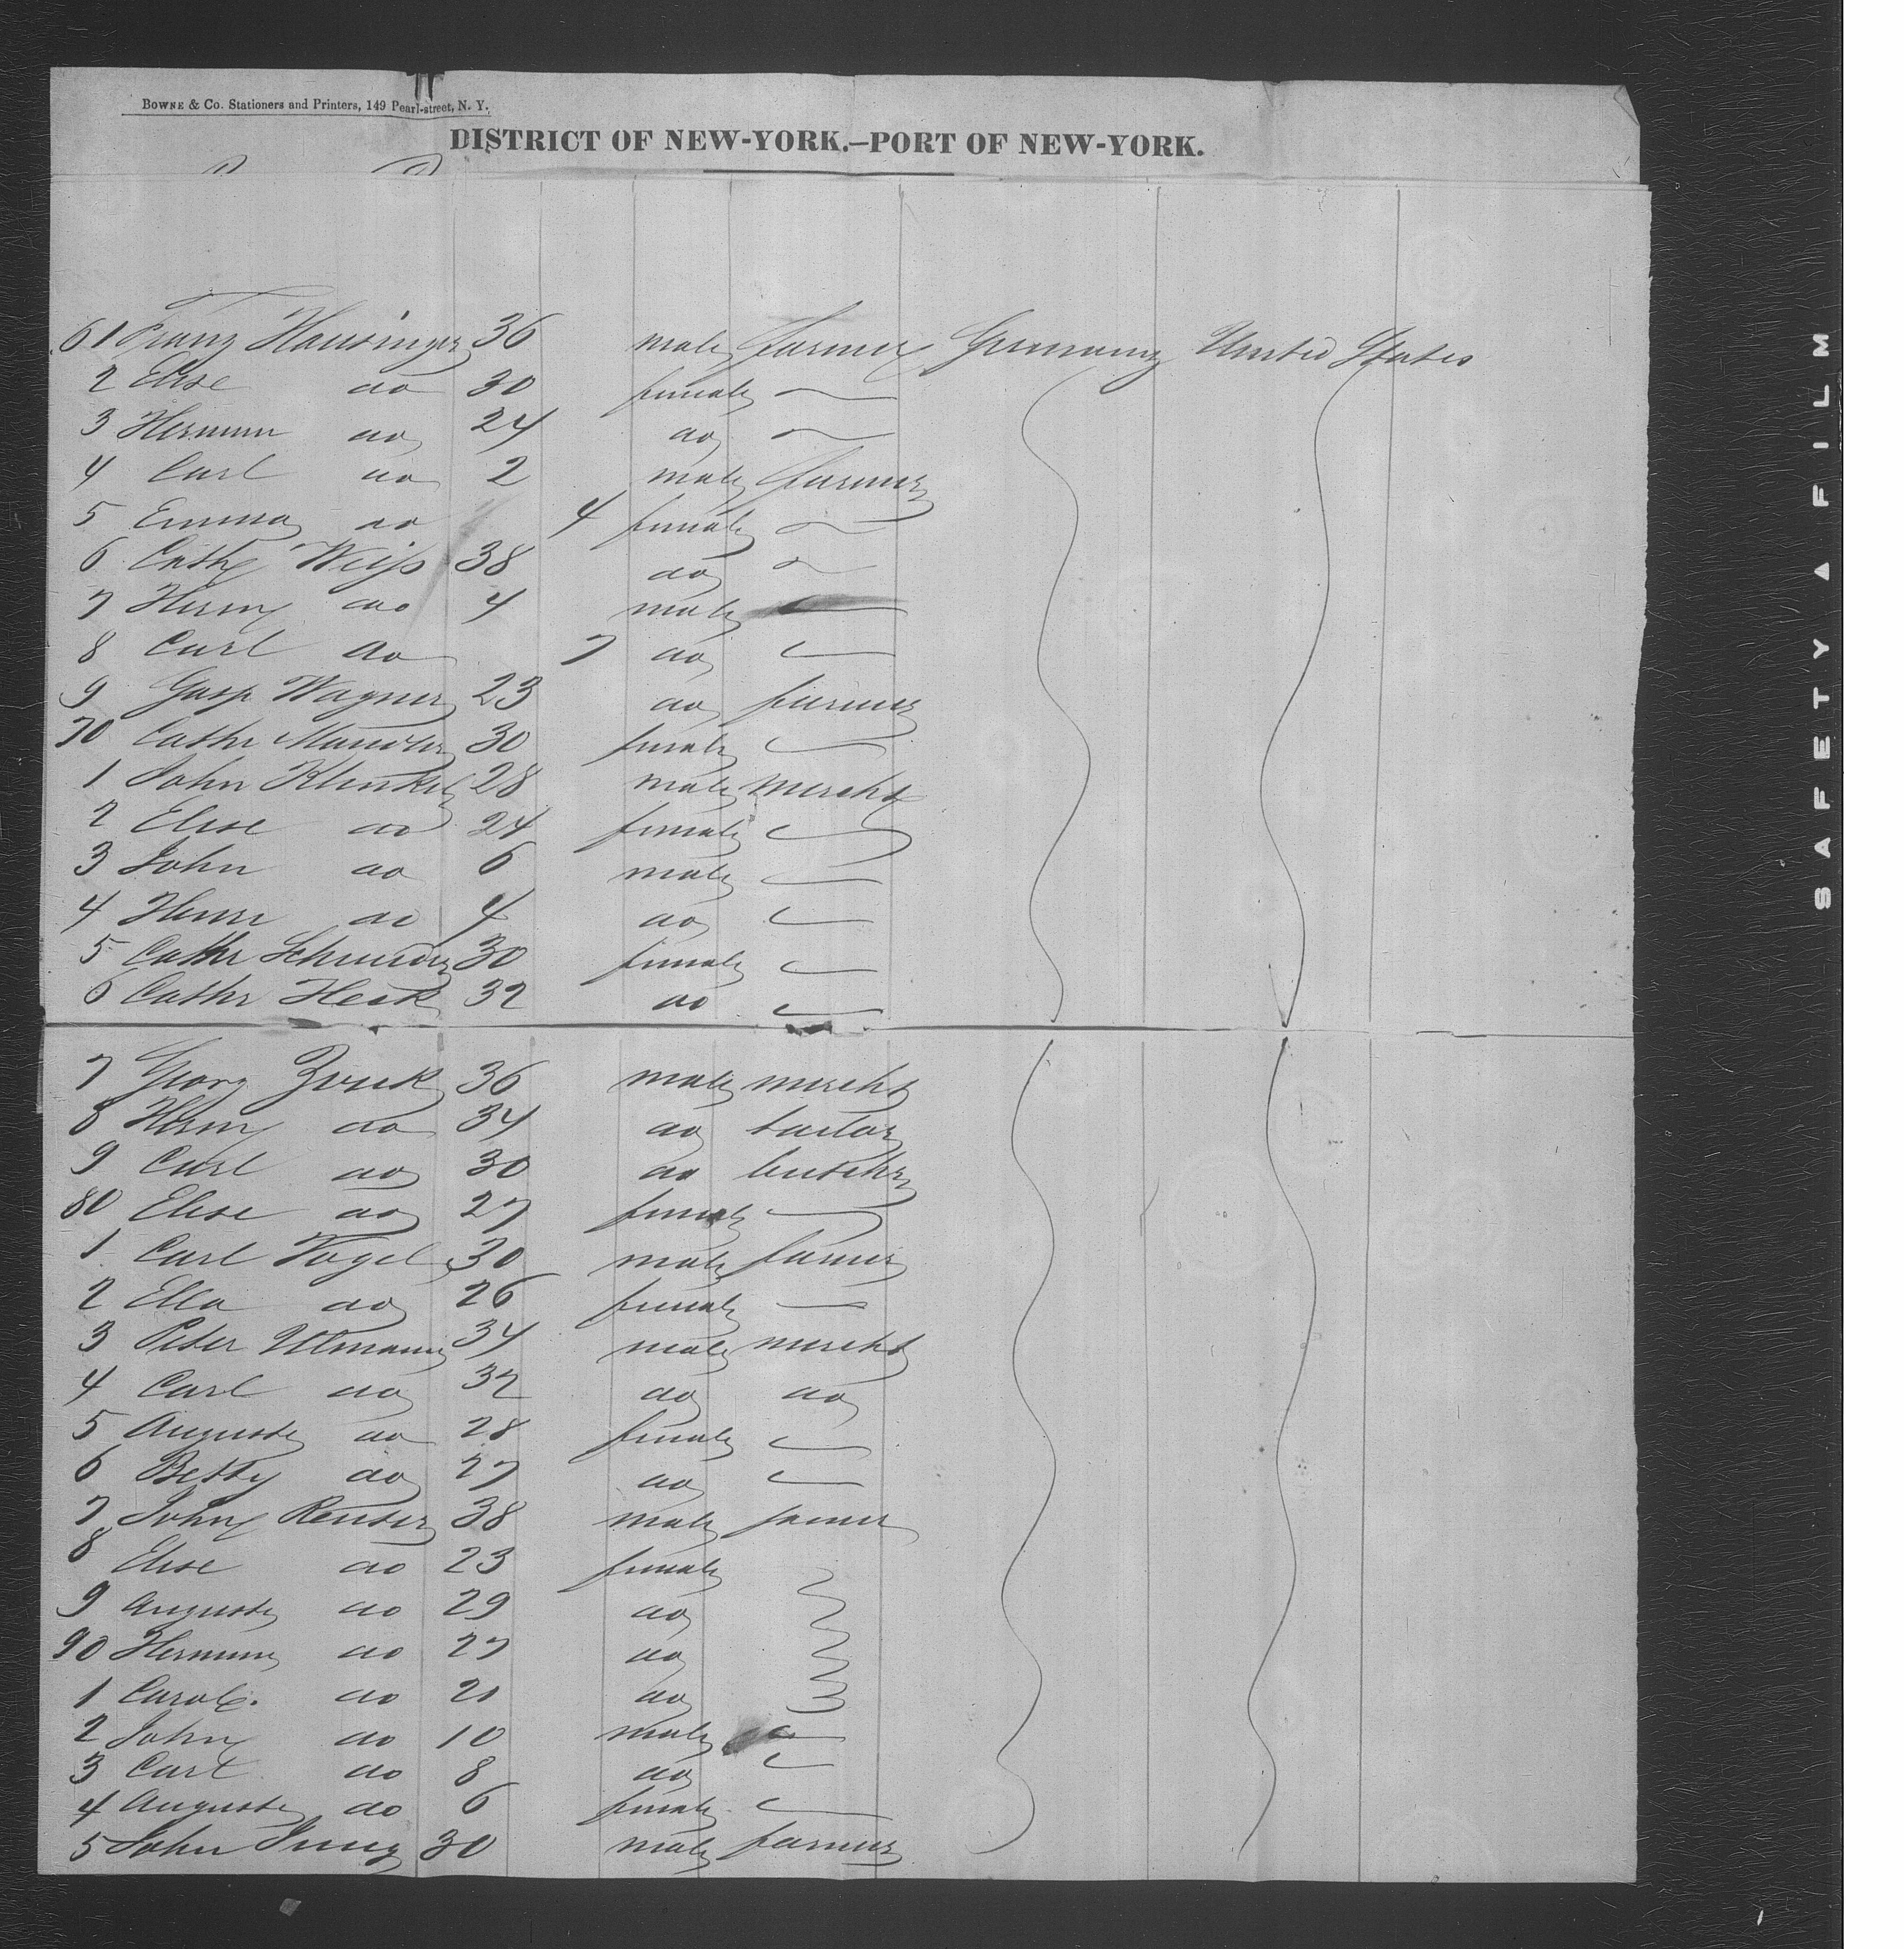 BOWNE & Co. Stationers and Printers, 149 Pearl-street, N. Y.
DISTRICT OF NEW-YORK.–PORT OF NEW-YORK.
61 Franz Hausinger 36 male farmer Germany United States
2 Elise do 30 female
3 Hermin do 24 do
4 Carl do 2 male farmer
5 Emma do 4 female
6 Cath Weiss 38 do
7 Herm do 4 male
8 Carl do 7 do
9 Gasp Wagner 23 do farmer
70 Cathr 30 female
1 John Klinkel 28 male mercht
2 Elise do 24 female
3 John do 6 male
4 Henr do 4 do
5 Cathr Schneider 30 female
6 Cathr Heck 32 do
7 Georg 36 male mercht
8 Herm do 34 do tailor
9 Carl do 30 do butchr
80 Elise do 27 female
1 Carl Vogel 30 male farmer
2 Ella do 26 female
3 Peter Ulmann 34 male mercht
4 Carl do 32 do do
5 Auguste do 28 female
6 Betty do 27 do
7 John Reuter 38 male farmer
8 Elise do 23 female
9 Auguste do 29 do
90 Hermine do 27 do
1 Carol. do 21 do
2 John do 10 male
3 Carl do 8 do
4 Auguste do 6 female
5 John Jung 30 male farmer
SAFETY A FILM